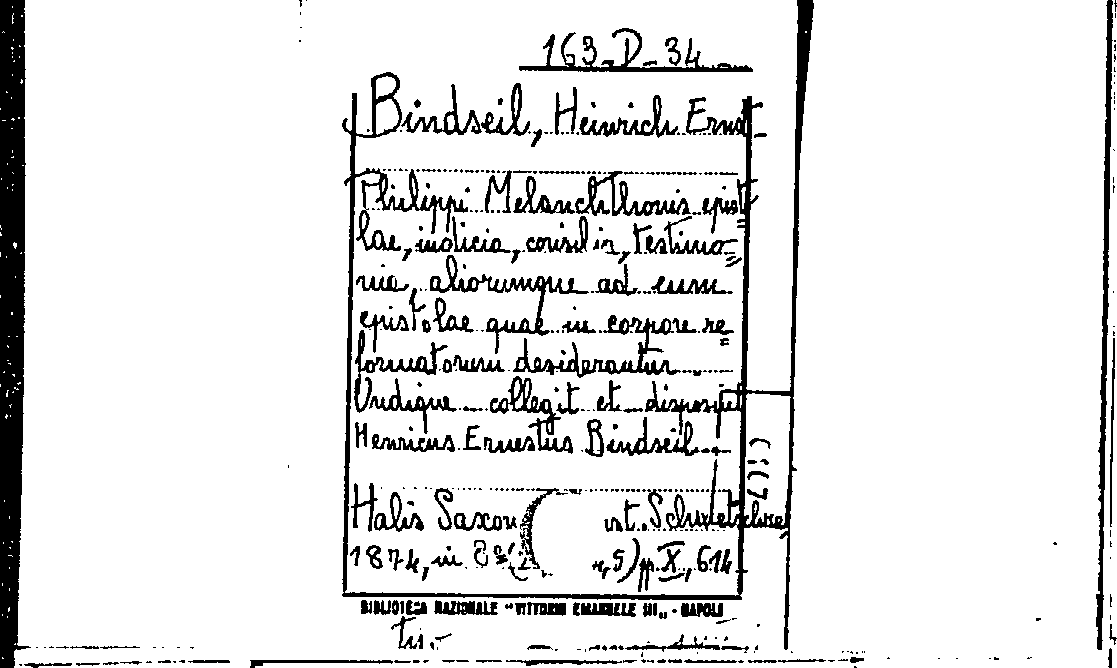 163-D-34
Bindseil, Heinrich Ernst
Philippi Melanchthonis episto
lae, iudicia, consilia, testimo=
nia, aliorumque ad eum
epistolae quae in corpore re=
formatorum desiderantur.
Undique collegit et disposuit
Henricus Ernestus Bindseil.
Halis Saxon st. Schwetschke
1874, in 8° ,5) pp. X, 614
BIBLIOTECA NAZIONALE "VITTORIO EMANUELE III„ - NAPOLI